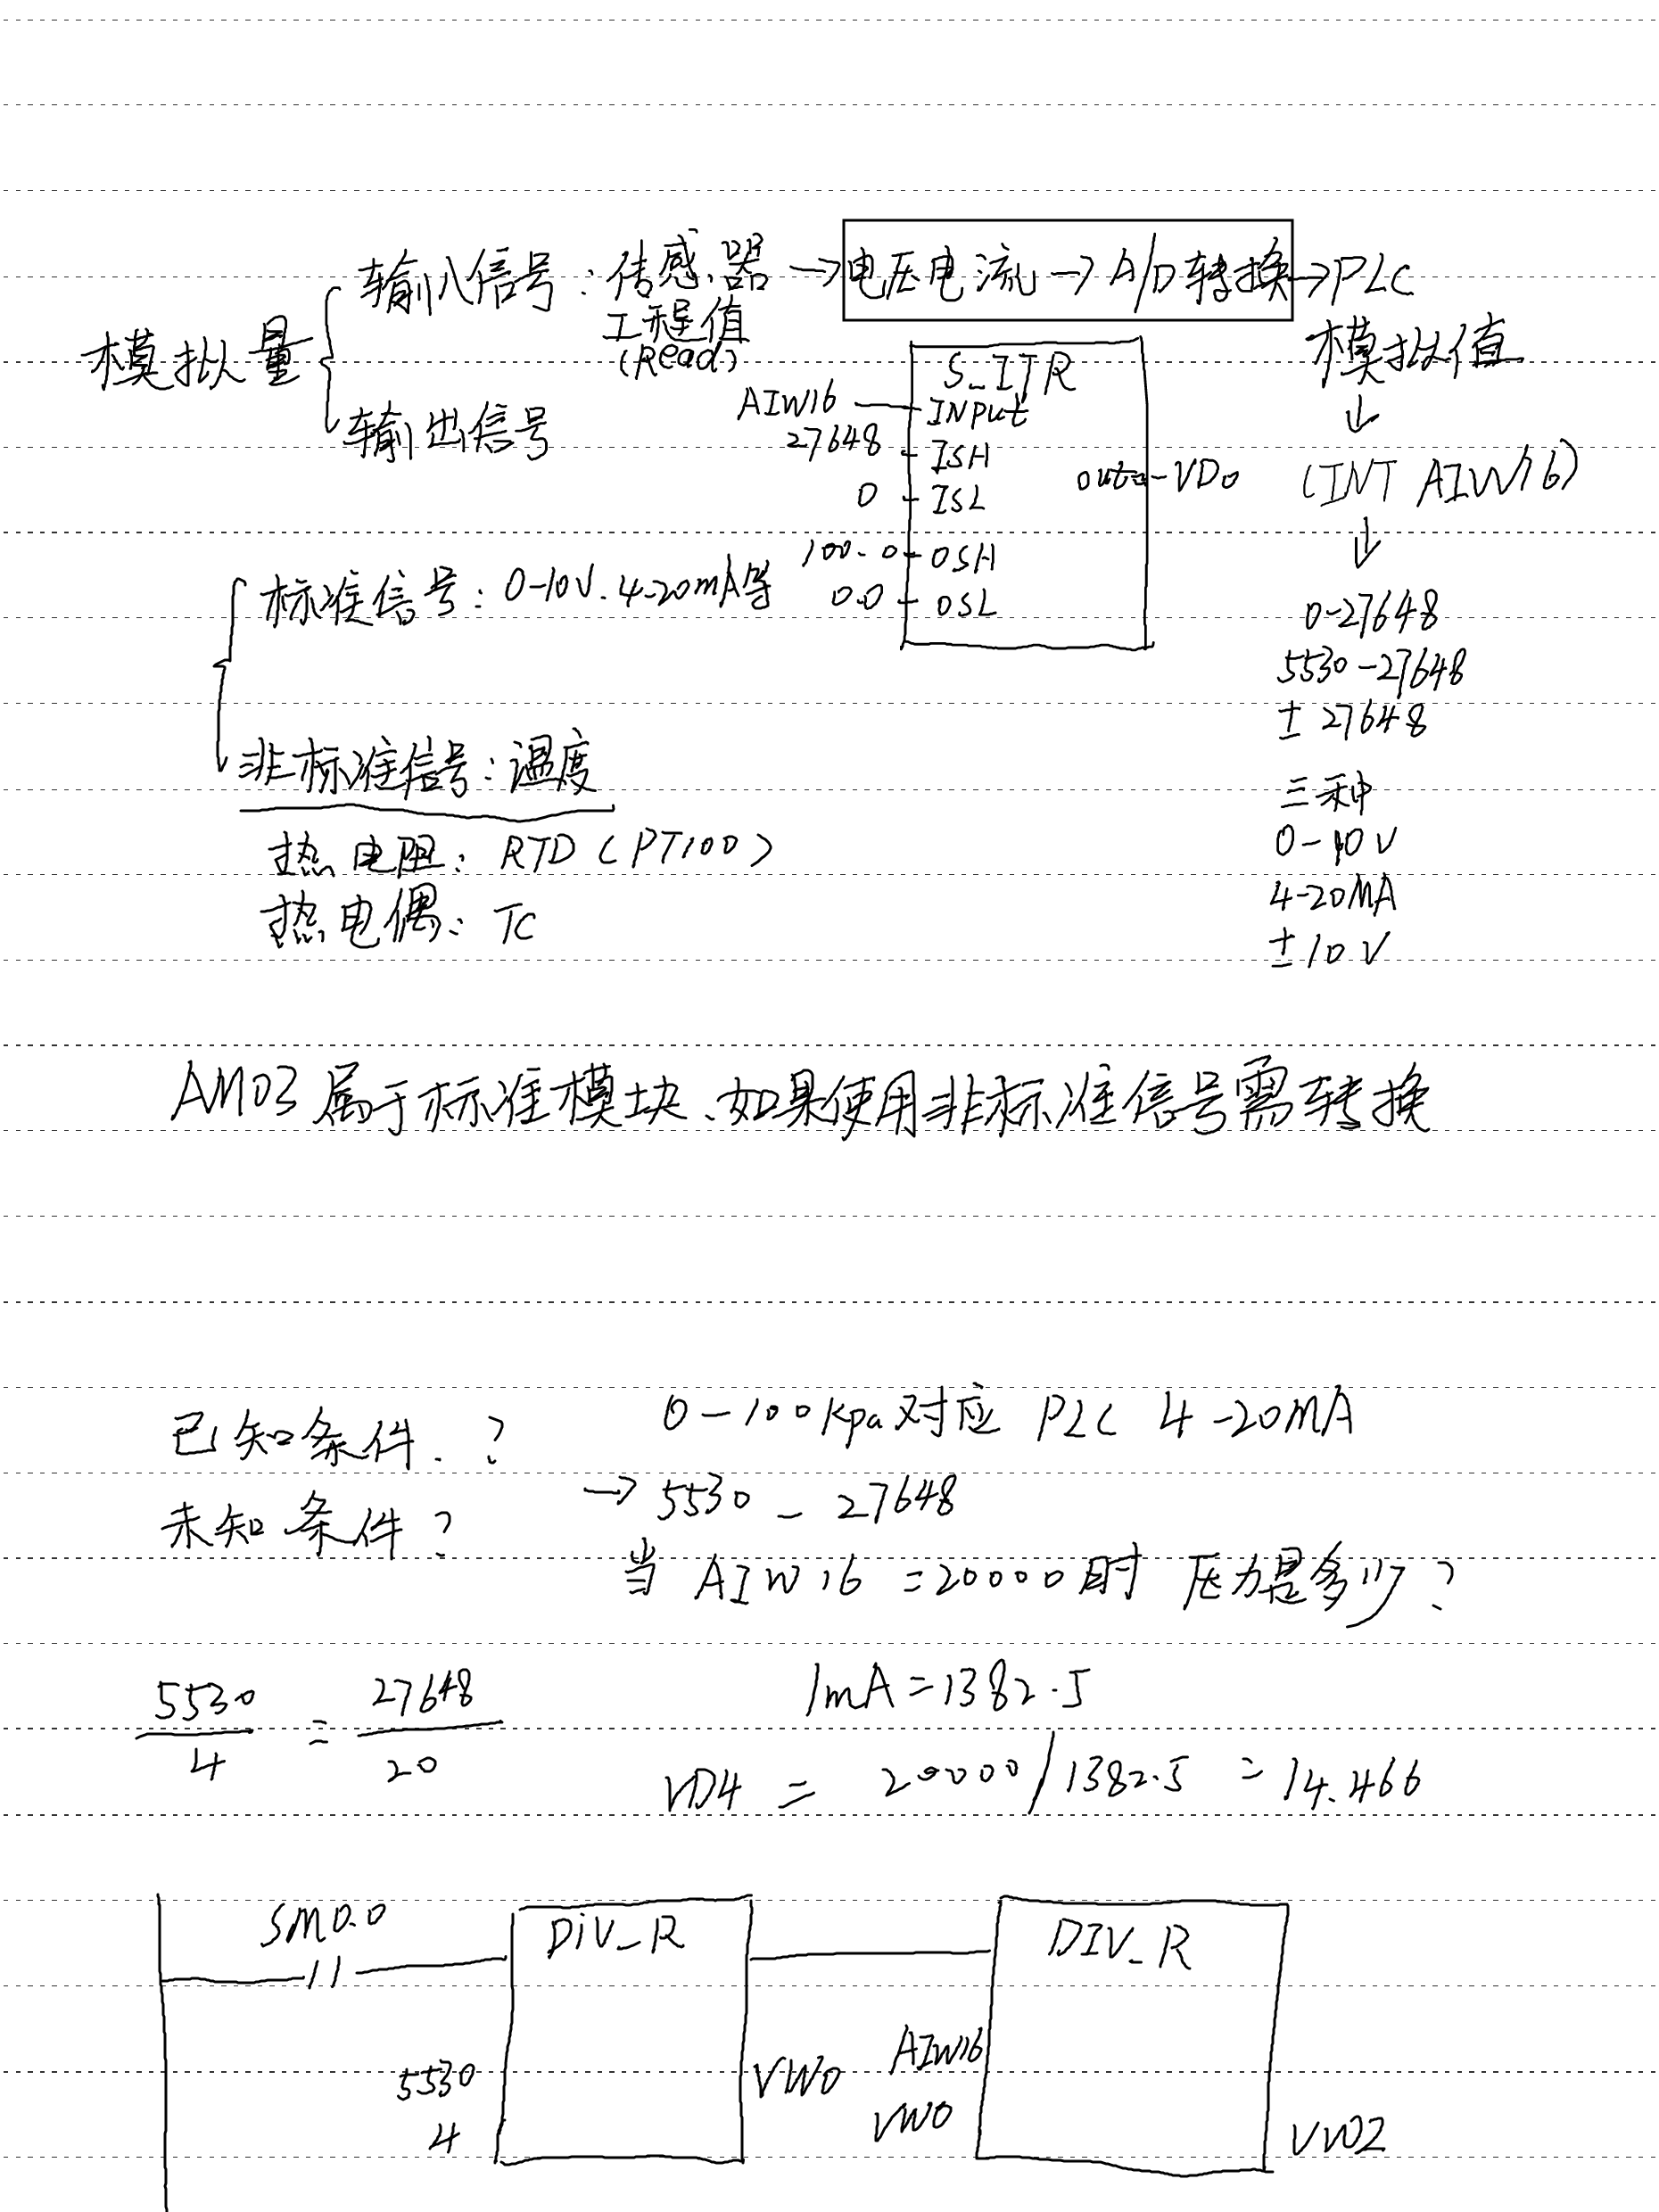 输入信号：传感器→电压电流→A/D转换→PLC
工程值
(Read)
模拟量
输出信号
S_ITR
AIW16
INPut
27648
ISH
0
ISL
out
VD0
100.0
OSH
0.0
OSL
模拟值
↓
(INT AIW16)
↓
0-27648
5530-27648
±27648
三种
0-10V
4-20MA
±10V
标准信号：0-10V.4-20mA等
非标准信号：温度
热电阻：RTD(PT100)
热电偶：TC
AM03属于标准模块、如果使用非标准信号需转换
已知条件.？
未知条件？
0-100Kpa对应 PLC 4-20MA
→5530-27648
当 AIW16=20000时 压力是多少？
5530/4=27648/20
1mA=1382.5
VD4=20000/1382.5=14.466
SM0.0
DiV_R
DIV_R
5530
4
VW0
AIW16
VW0
VW02